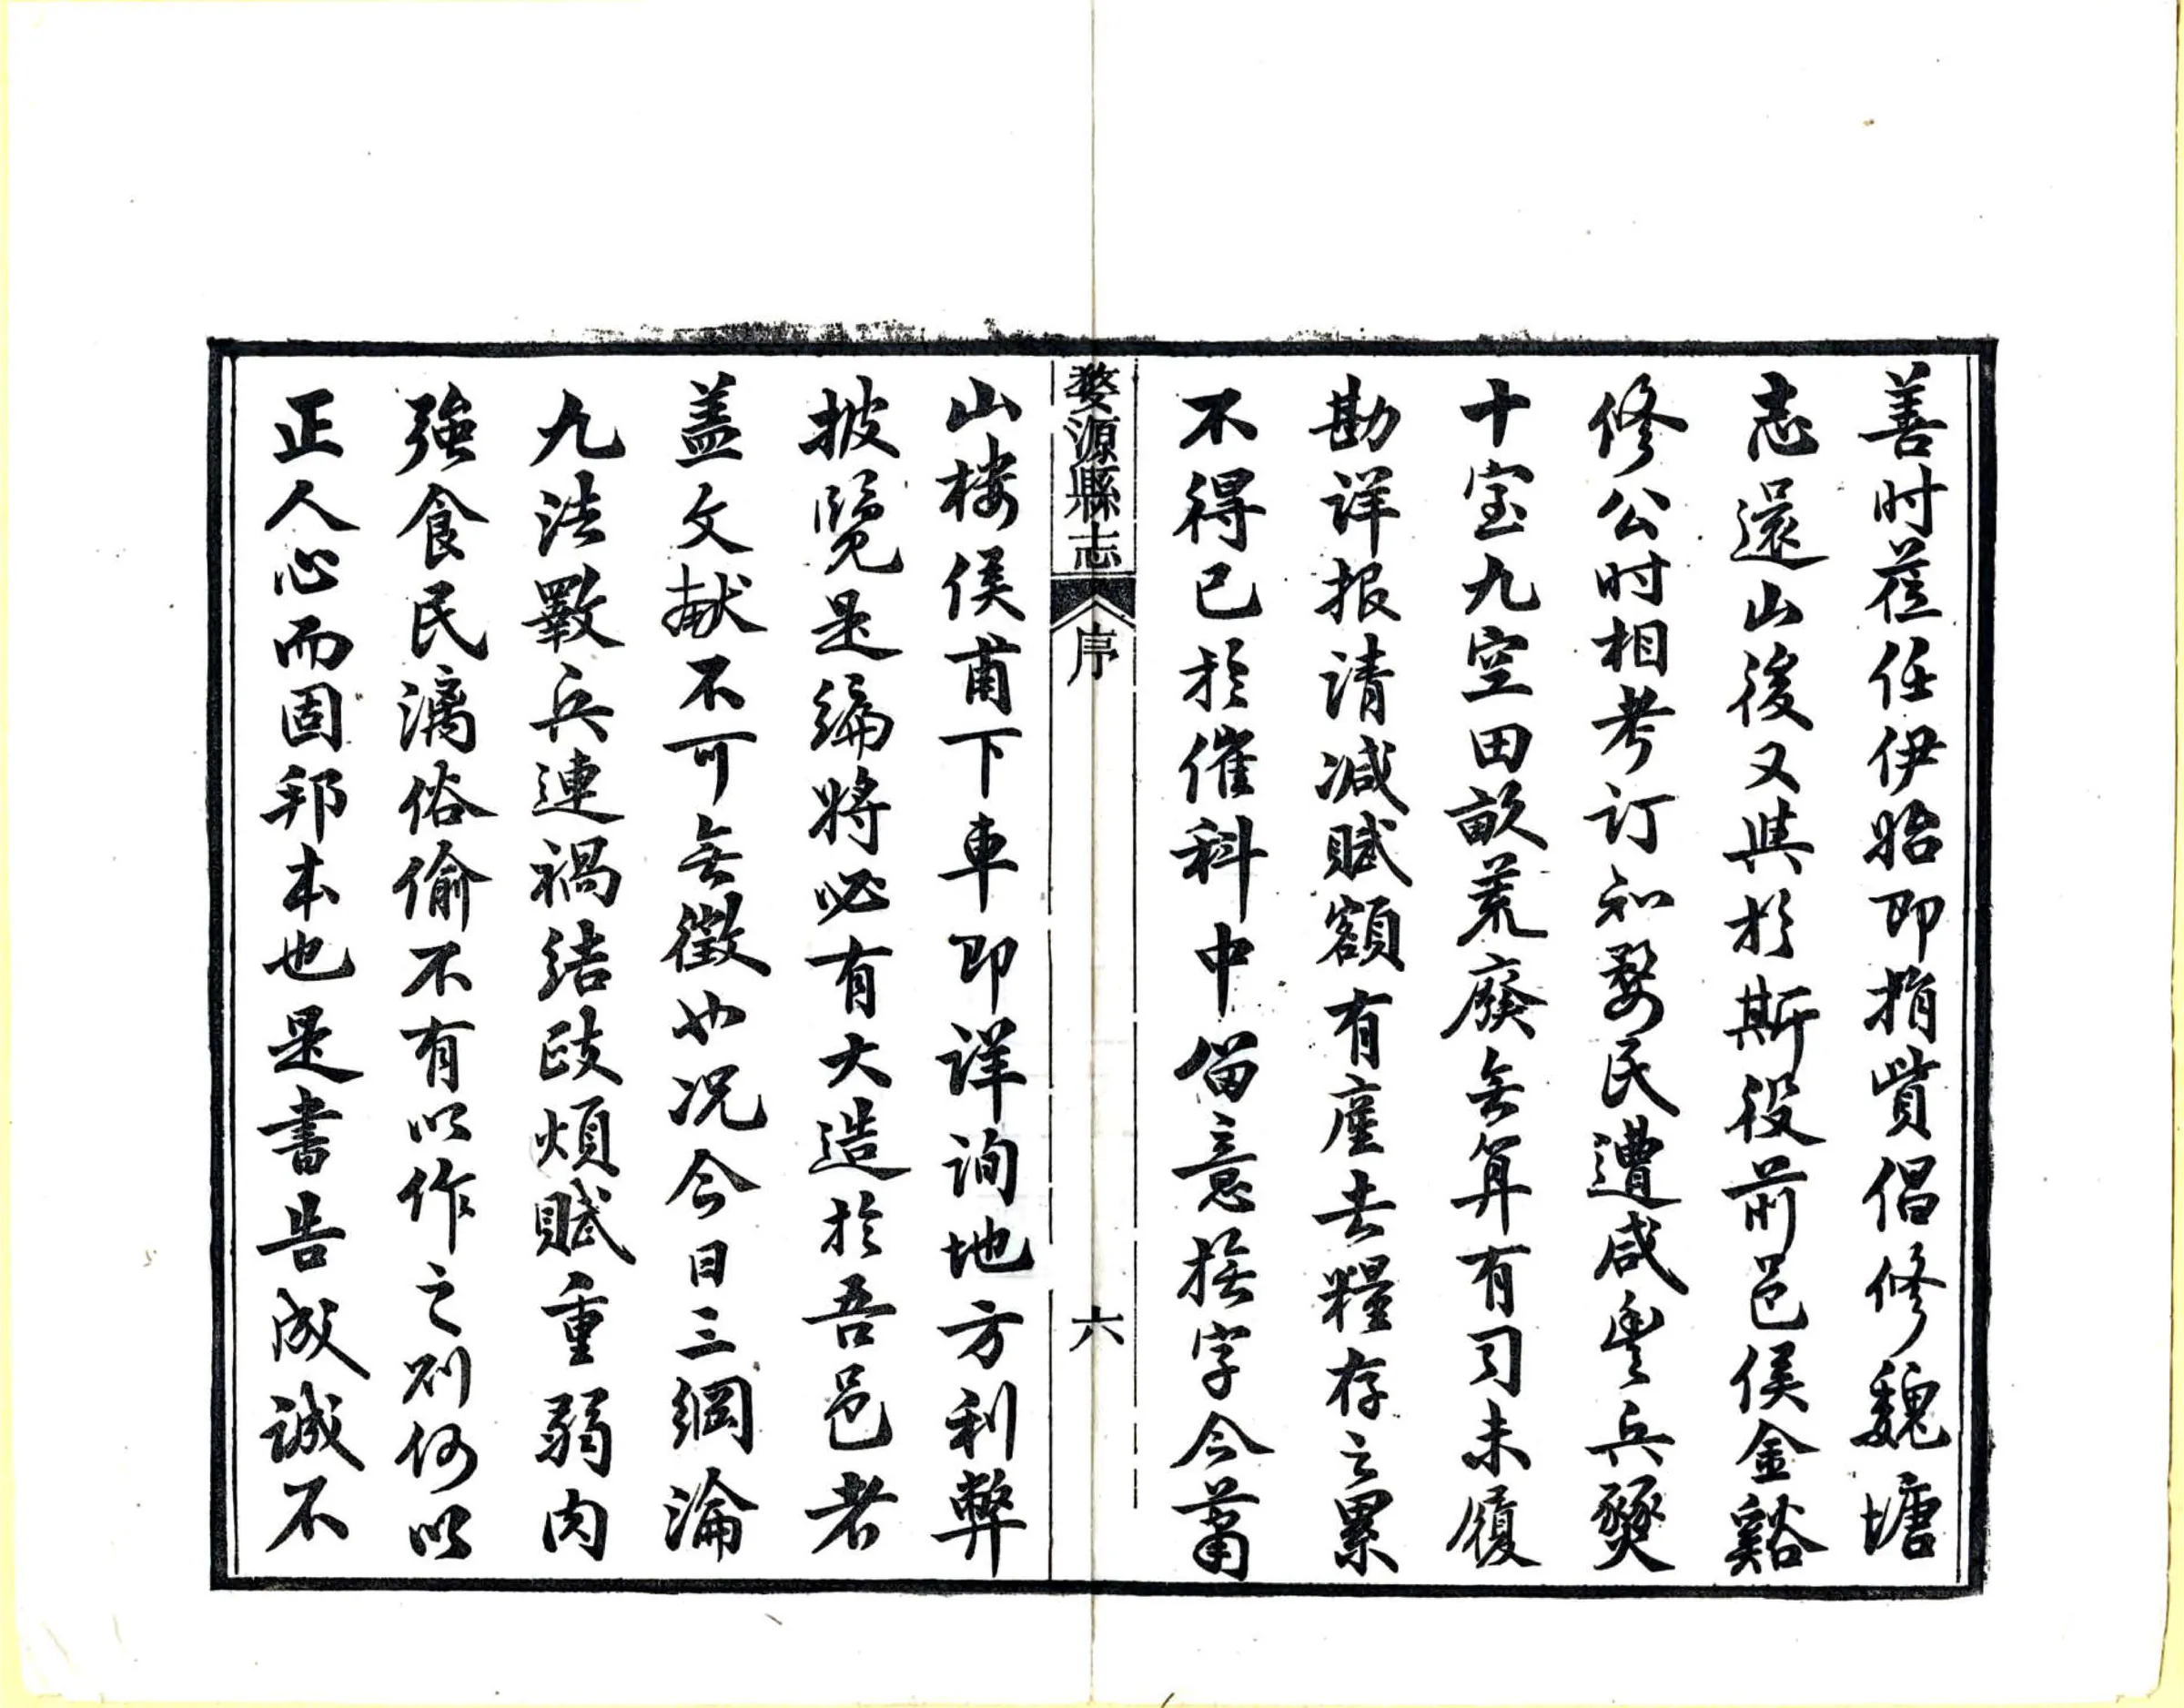 善时莅任伊始即捐貲倡修魏塘
志還山後又与於斯役前邑侯金谿
修公时相考订知婺民遭咸豐兵燹
十室九空田畝荒廢无算有司未履
勘详报请减賦額有產去糧存之累
不得已於催科中留意撫字今蕭
婺源縣志
序
六
山楼侯甫下車即详询地方利弊
披覽是編將必有大造於吾邑者
盖文献不可无徵也况今日三綱淪
九法斁兵連禍结政煩賦重弱肉
強食民漓俗偷不有以作之则何以
正人心而固邦本也是書告成誠不